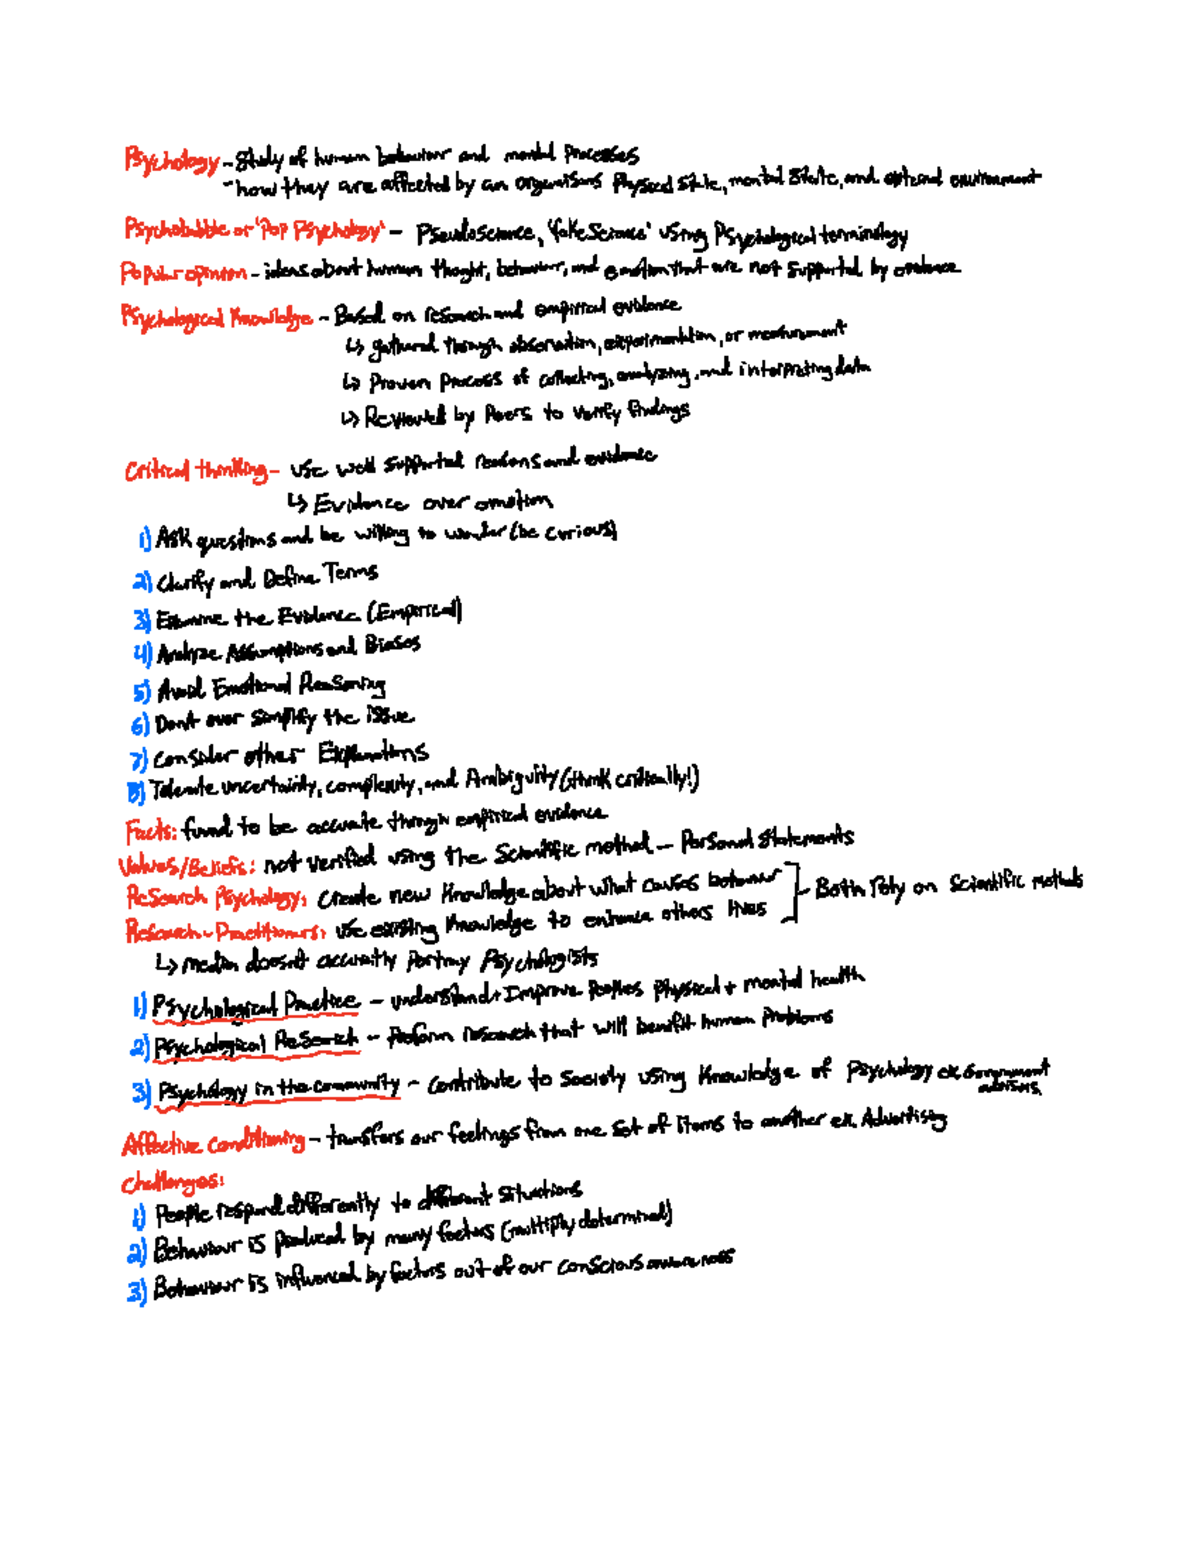 Psychology - Study of human behaviour and mental processes
- how they are affected by an organisms physical state, mental state, and external environment
Psychobabble or 'Pop Psychology' - Pseudoscience, 'fake science' using Psychological terminology
Popular opinion - ideas about human thought, behaviour, and emotion that are not supported by evidence
Psychological Knowledge - Based on research and empirical evidence
↳ gathered through observation, experimentation, or measurement
↳ Proven process of collecting, analyzing, and interpreting data
↳ Reviewed by Peers to verify findings
Critical thinking - use well supported reasons and evidence
↳ Evidence over emotion
1) Ask questions and be willing to wonder (be curious)
2) Clarify and Define Terms
3) Examine the Evidence (Empirical)
4) Analyze Assumptions and Biases
5) Avoid Emotional Reasoning
6) Dont over simplify the issue
7) Consider other Explanations
8) Tolerate uncertainty, complexity, and Ambiguity (think critically!)
Facts: found to be accurate through empirical evidence
Values/Beliefs: not verified using the Scientific method - Personal Statements
Research Psychology: create new Knowledge about what causes behaviour
Both rely on Scientific methods
Research-Practitioners: use existing Knowledge to enhance others lives
↳ media doesnt accurately portray Psychologists
1) Psychological Practice - understand + Improve Peoples Physical + mental health
2) Psychological Research - Perform research that will benifit human Problems
3) Psychology in the community - contribute to Society using Knowledge of Psychology ex. Government
advisors.
Affective Conditioning - transfers our feelings from one set of items to another ex. Advertising
Challenges:
1) People respond differently to different situations
2) Behaviour is produced by many factors (multiply determined)
3) Behaviour is influenced by factors out of our conscious awareness